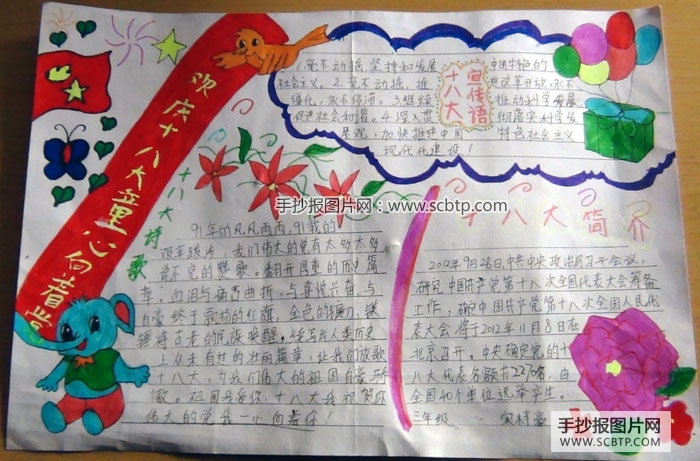 欢庆十八大童心向着党
1.毫不动摇坚持和发展中国特色的
社会主义。2.毫不动摇,推进改革开放,永不
僵化,永不停滞。3.继续推动科学发展
促进社会和谐。4.深入贯彻落实科学发
展观,加快推进中国特色社会主义
现代化建设!
十八大
宣传语
十八大诗歌
91年的风风雨雨,91载的
艰辛跋涉,我们伟大的党有太多太多
翻开厚重的历史篇
章,血泪与痛苦曲折,与喜悦
自豪
古老的民族唤醒,
上从未有过的壮丽篇章,让我们放歌
十八大,为我们伟大的祖国自豪骄
傲。祖国我爱你,十八大我祝贺你
伟大的党我一心向着你!
手抄报图片网:www.scbtp.com
十八大简介
2012年9月28日,中共中央政治局召开会议,
研究中国共产党第十八次全国代表大会筹备
工作,确定中国共产党第十八次全国人民代
表大会将于2012年11月8日在
北京召开。中央确定党的十
八大代表名额共2270名,由
全国40个单位选举产生。
三年级
手抄报图片网
WWW.SCBTP.COM